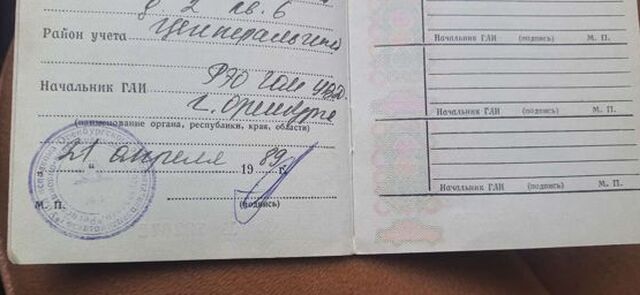 д 2 кв. 6
Район учета Центральный
Начальник ГАИ РЭО ГАИ УВД
г. Оренбурга
(наименование органа, республики, края, области)
21 апреля 1989 г.
М. П. (подпись)
Начальник ГАИ (подпись) М. П.
Начальник ГАИ (подпись) М. П.
Начальник ГАИ (подпись) М. П.